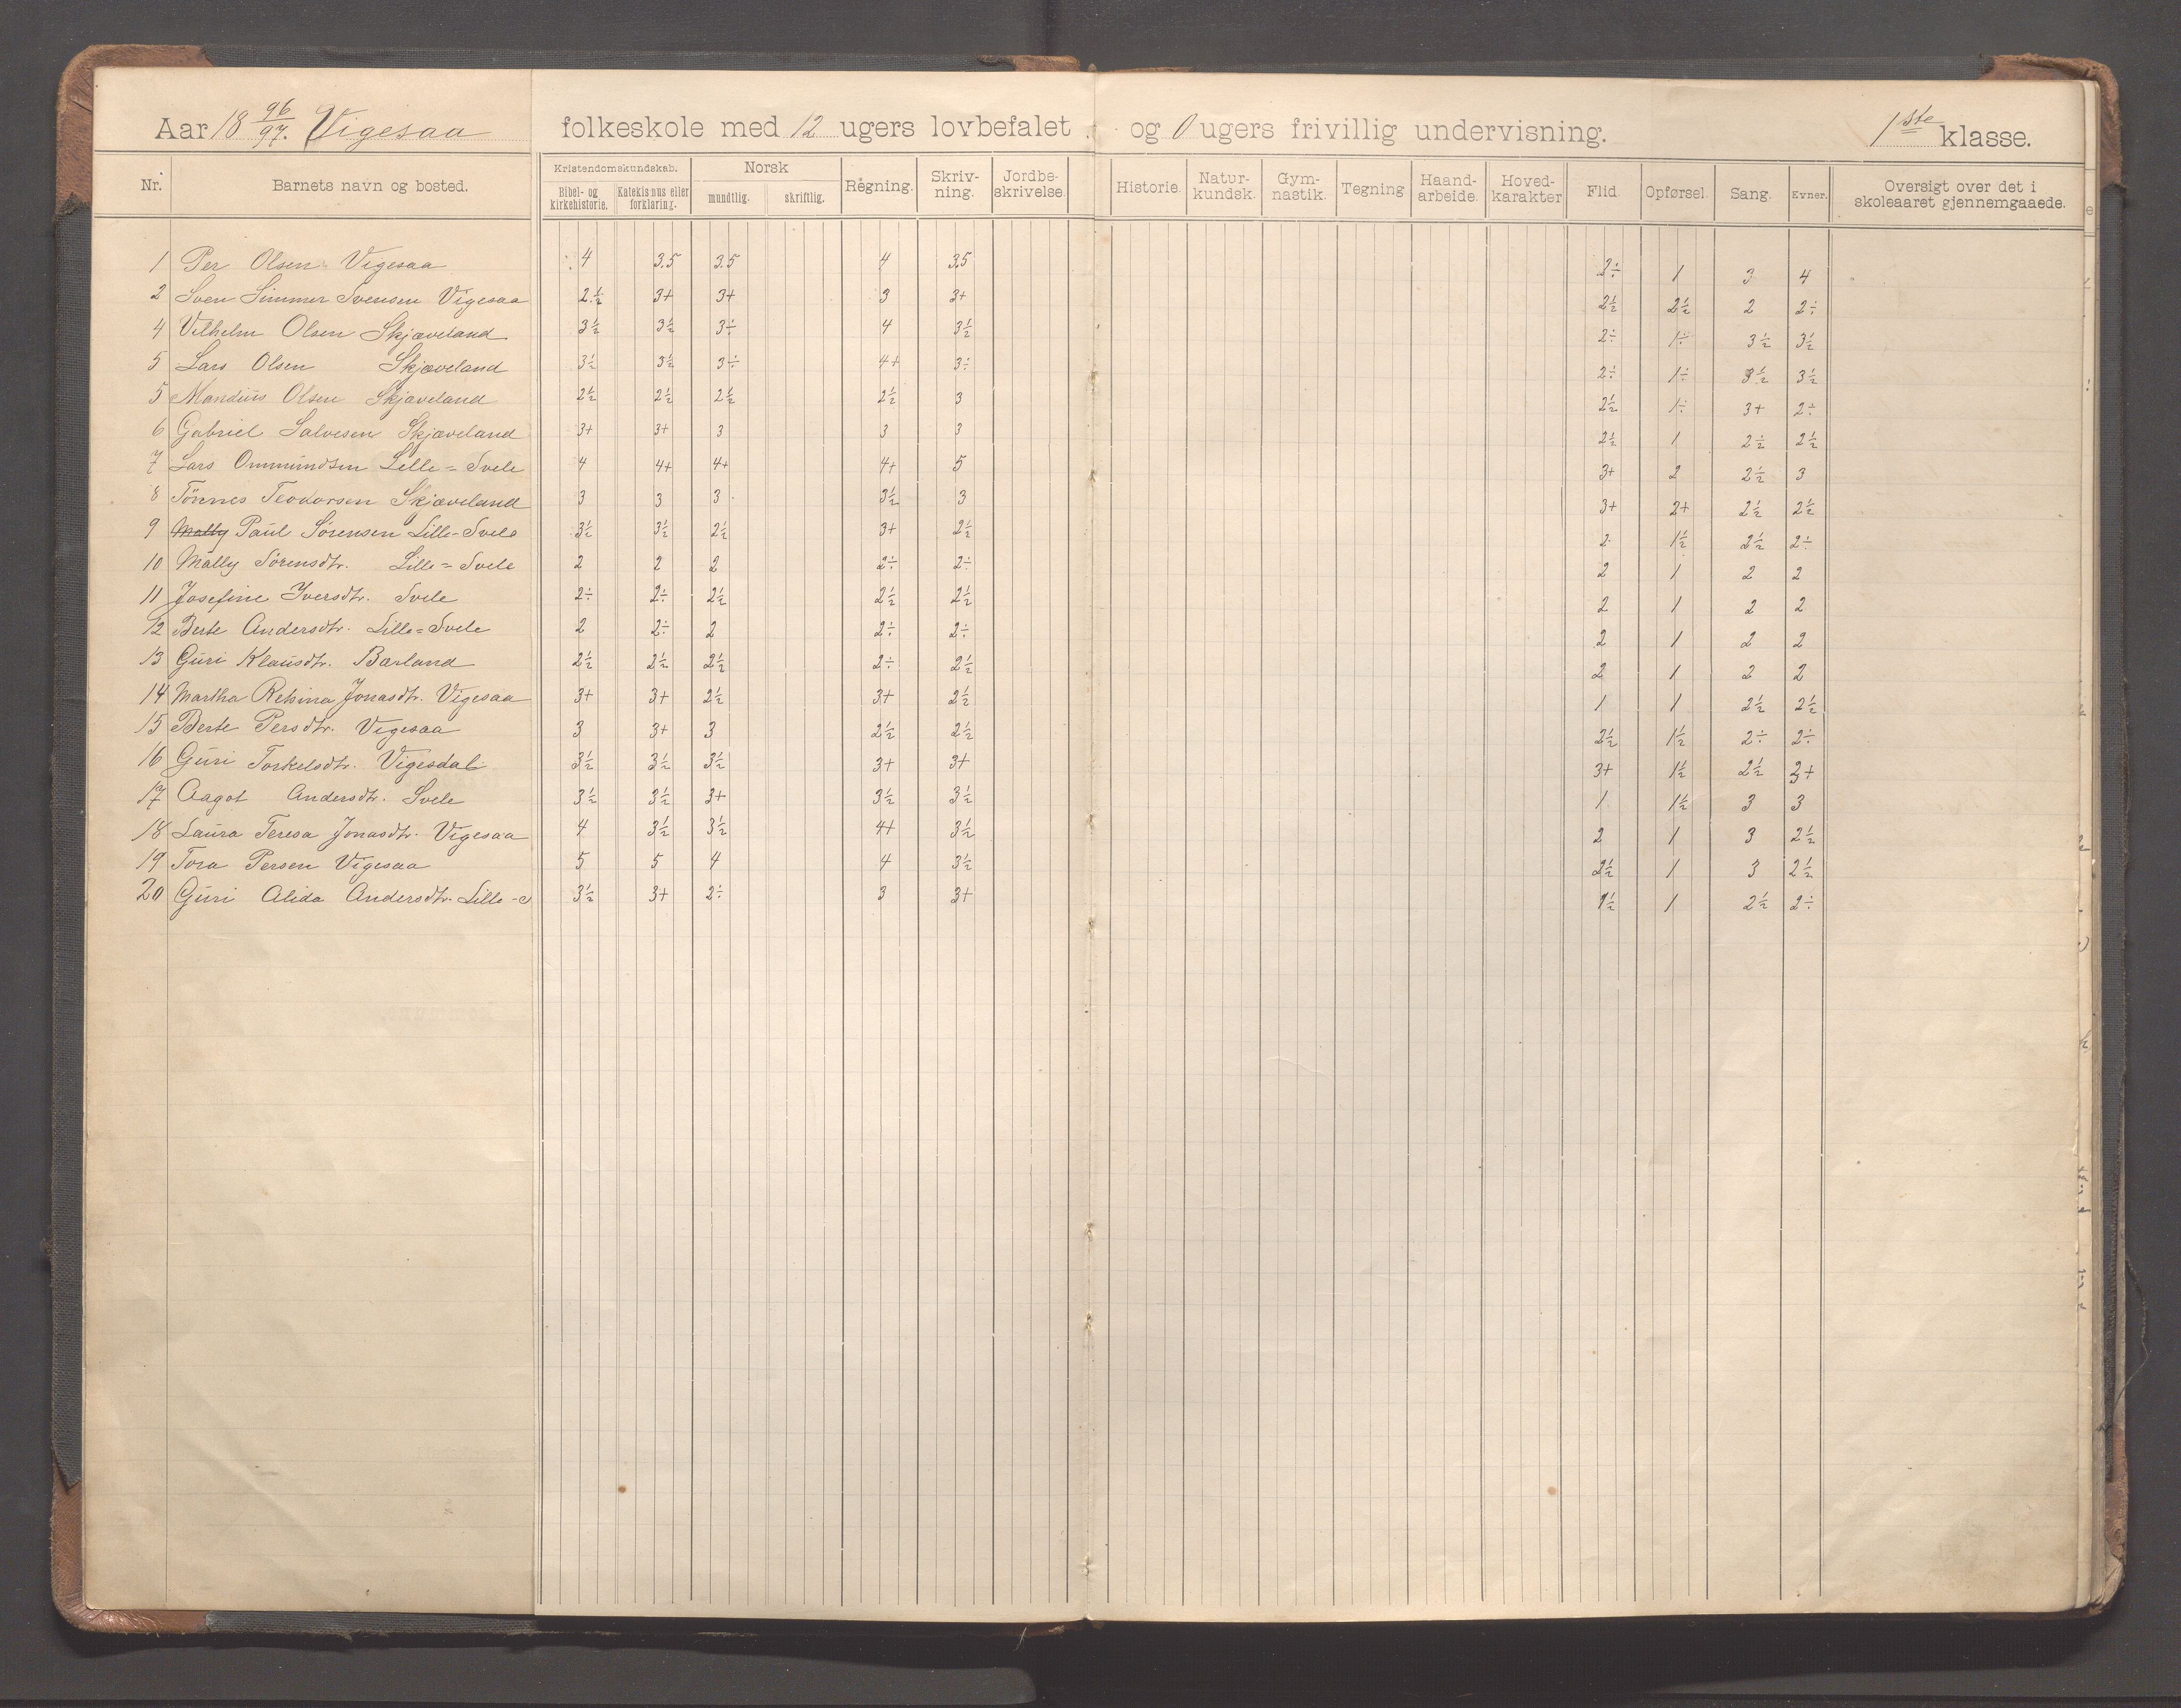 Aar 18 96/97. Vigesaa folkeskole med 12 ugers lovbefalet og 0 ugers frivillig undervisning. 1ste klasse.
Nr. Barnets navn og bosted. Kristendomskundskab. Bibel- og kirkehistorie. Katekismus eller forklaring. Norsk mundtlig. skriftlig. Regning. Skriv-ning. Jordbe-skrivelse. Historie. Natur-kundsk. Gym-nastik. Tegning Haand-arbeide. Hoved-karakter Flid. Opførsel. Sang. Evner. Oversigt over det i skoleaaret gjennemgaaede.
1 Per Olsen Vigesaa 4 3.5 3.5 4 3.5 2÷ 1 3 4
2 Sven Simmer Svensen Vigesaa 2½ 3+ 3+ 3 3+ 2½ 2½ 2 2÷
4 Vilhelm Olsen Skjæveland 3½ 3½ 3÷ 4 3½ 2÷ 1÷ 3½ 3½
5 Lars Olsen Skjæveland 3½ 3½ 3÷ 4+ 3÷ 2÷ 1÷ 3½ 3½
5 Mandius Olsen Skjæveland 2½ 2½ 2½ 2½ 3 2½ 1÷ 3+ 2÷
6 Gabriel Salvesen Skjæveland 3+ 3+ 3 3 3 2½ 1 2½ 2½
7 Lars Ommundsen Lille=Svele 4 4+ 4+ 4+ 5 3+ 2 2½ 3
8 Tönnes Teodorsen Skjæveland 3 3 3 3½ 3 3+ 2+ 2½ 2½
9 Mally Paul Sørensen Lille-Svele 3½ 3½ 2½ 3+ 2½ 2 1½ 2½ 2÷
10 Mally Sörensdtr. Lille=Svele 2 2 2 2÷ 2÷ 2 1 2 2
11 Josefine Iversdtr. Svele 2÷ 2÷ 2½ 2½ 2½ 2 1 2 2
12 Berte Andersdtr. Lille=Svele 2 2÷ 2 2÷ 2÷ 2 1 2 2
13 Guri Klausdtr. Barland 2½ 2½ 2½ 2÷ 2½ 2 1 2 2
14 Martha Rekina Jonasdtr. Vigesaa 3+ 3+ 2½ 3+ 2½ 1 1 2½ 2½
15 Berte Persdtr. Vigesaa 3 3+ 3 2½ 2½ 2½ 1½ 2÷ 2÷
16 Guri Torkelsdtr. Vigesdal 3½ 3½ 3½ 3+ 3+ 3+ 1½ 2½ 3+
17 Aagot Andersdtr. Svele 3½ 3½ 3+ 3½ 3½ 1 1½ 3 3
18 Laura Teresa Jonasdtr. Vigesaa 4 3½ 3½ 4+ 3½ 2 1 3 2½
19 Tora Persen Vigesaa 5 5 4 4 3½ 2½ 1 3 2½
20 Guri Alida Andersdtr. Lille-S 3½ 3+ 2÷ 3 3+ 1½ 1 2½ 2÷